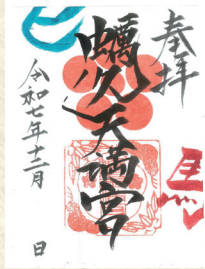 奉拝
蠣久天満宮
令和七年十二月　日